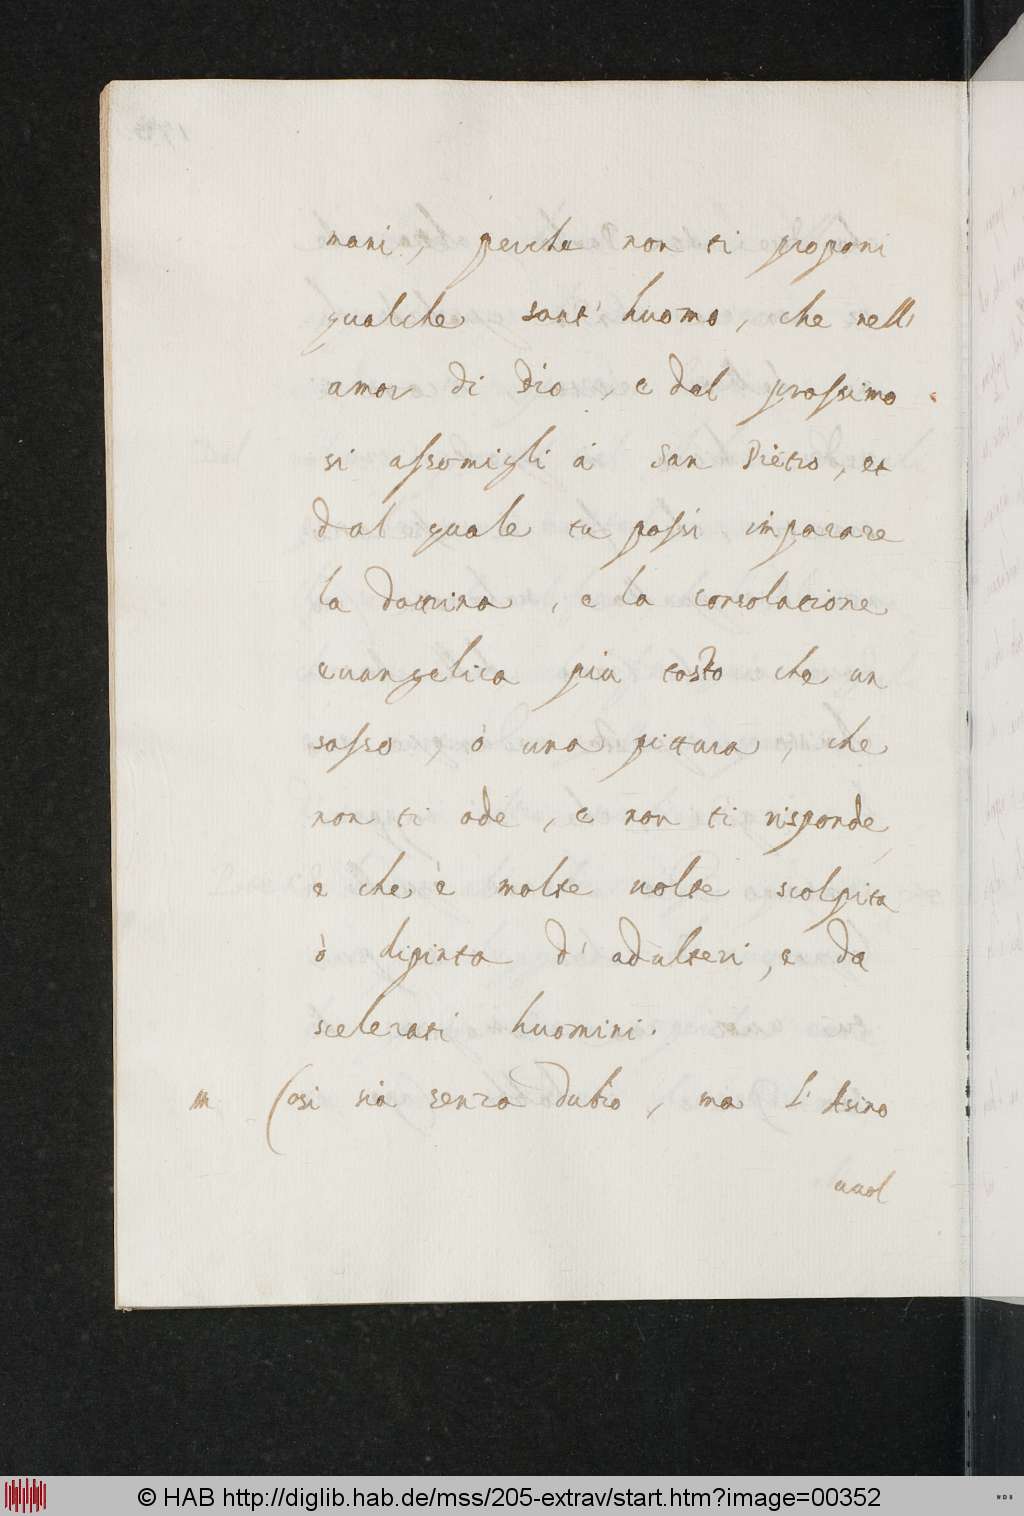 mani, perche non ti proponi
qualche sant' huomo, che nell'
amor di Dio, e del prossimo
si assomigli à San Pietro, et
dal quale tu possi imparare
la dottrina, e la consolatione
evangelica più tosto che un
sasso, ò una pittura, che
non ti ode, e non ti risponde
e che è molte volte scolpita
ò dipinta d' adulteri, e da
scelerati huomini.
m Cosi sia senza dubio, ma l' Asino
vuol
© HAB http://diglib.hab.de/mss/205-extrav/start.htm?image=00352